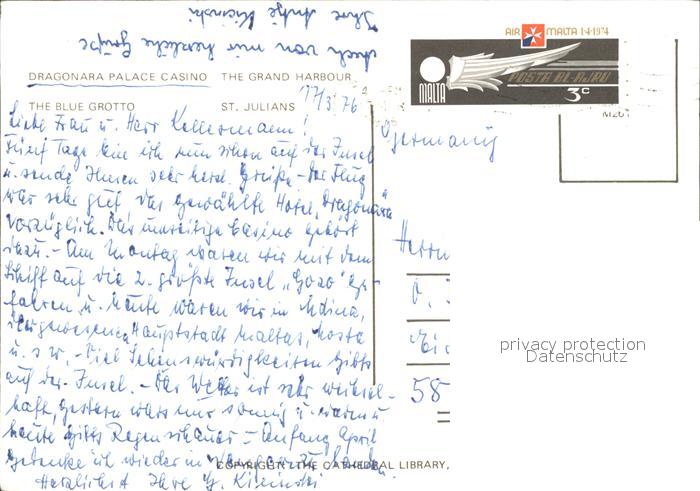 Auch von mir herzliche Grüße
Ihre Antje Kicinski
AIR MALTA 1·4·1974
POSTA BL-AJRU
MALTA 3c
M201
DRAGONARA PALACE CASINO THE GRAND HARBOUR
THE BLUE GROTTO ST. JULIANS
17/3. 76
Liebe Frau u. Herr Kellermann!
Fünf Tage bin ich nun schon auf der Insel
u. sende Ihnen sehr herzl. Grüße - Der Flug
war sehr gut das gewählte Hotel, Dragonara
vorzüglich. Das umseitige Casino gehört
dazu. - Am Montag waren wir mit dem
Schiff auf die 2. größte Insel "Gozo" ge-
fahren u. heute waren wir in Mdina,
der gewesenen Hauptstadt Maltas, Mosta
u. s w. - Viel Sehenswürdigkeiten gibts
auf der Insel. - Das Wetter ist sehr wechsel-
haft, gestern wars nur sonnig u. warm u
heute gibts Regenschauer - Anfang April
gedenke ich wieder in zu
Herzlichst Ihre Kicinski
Germany
Herrn
58
privacy protection
Datenschutz
COPYRIGHT: THE CATHEDRAL LIBRARY,